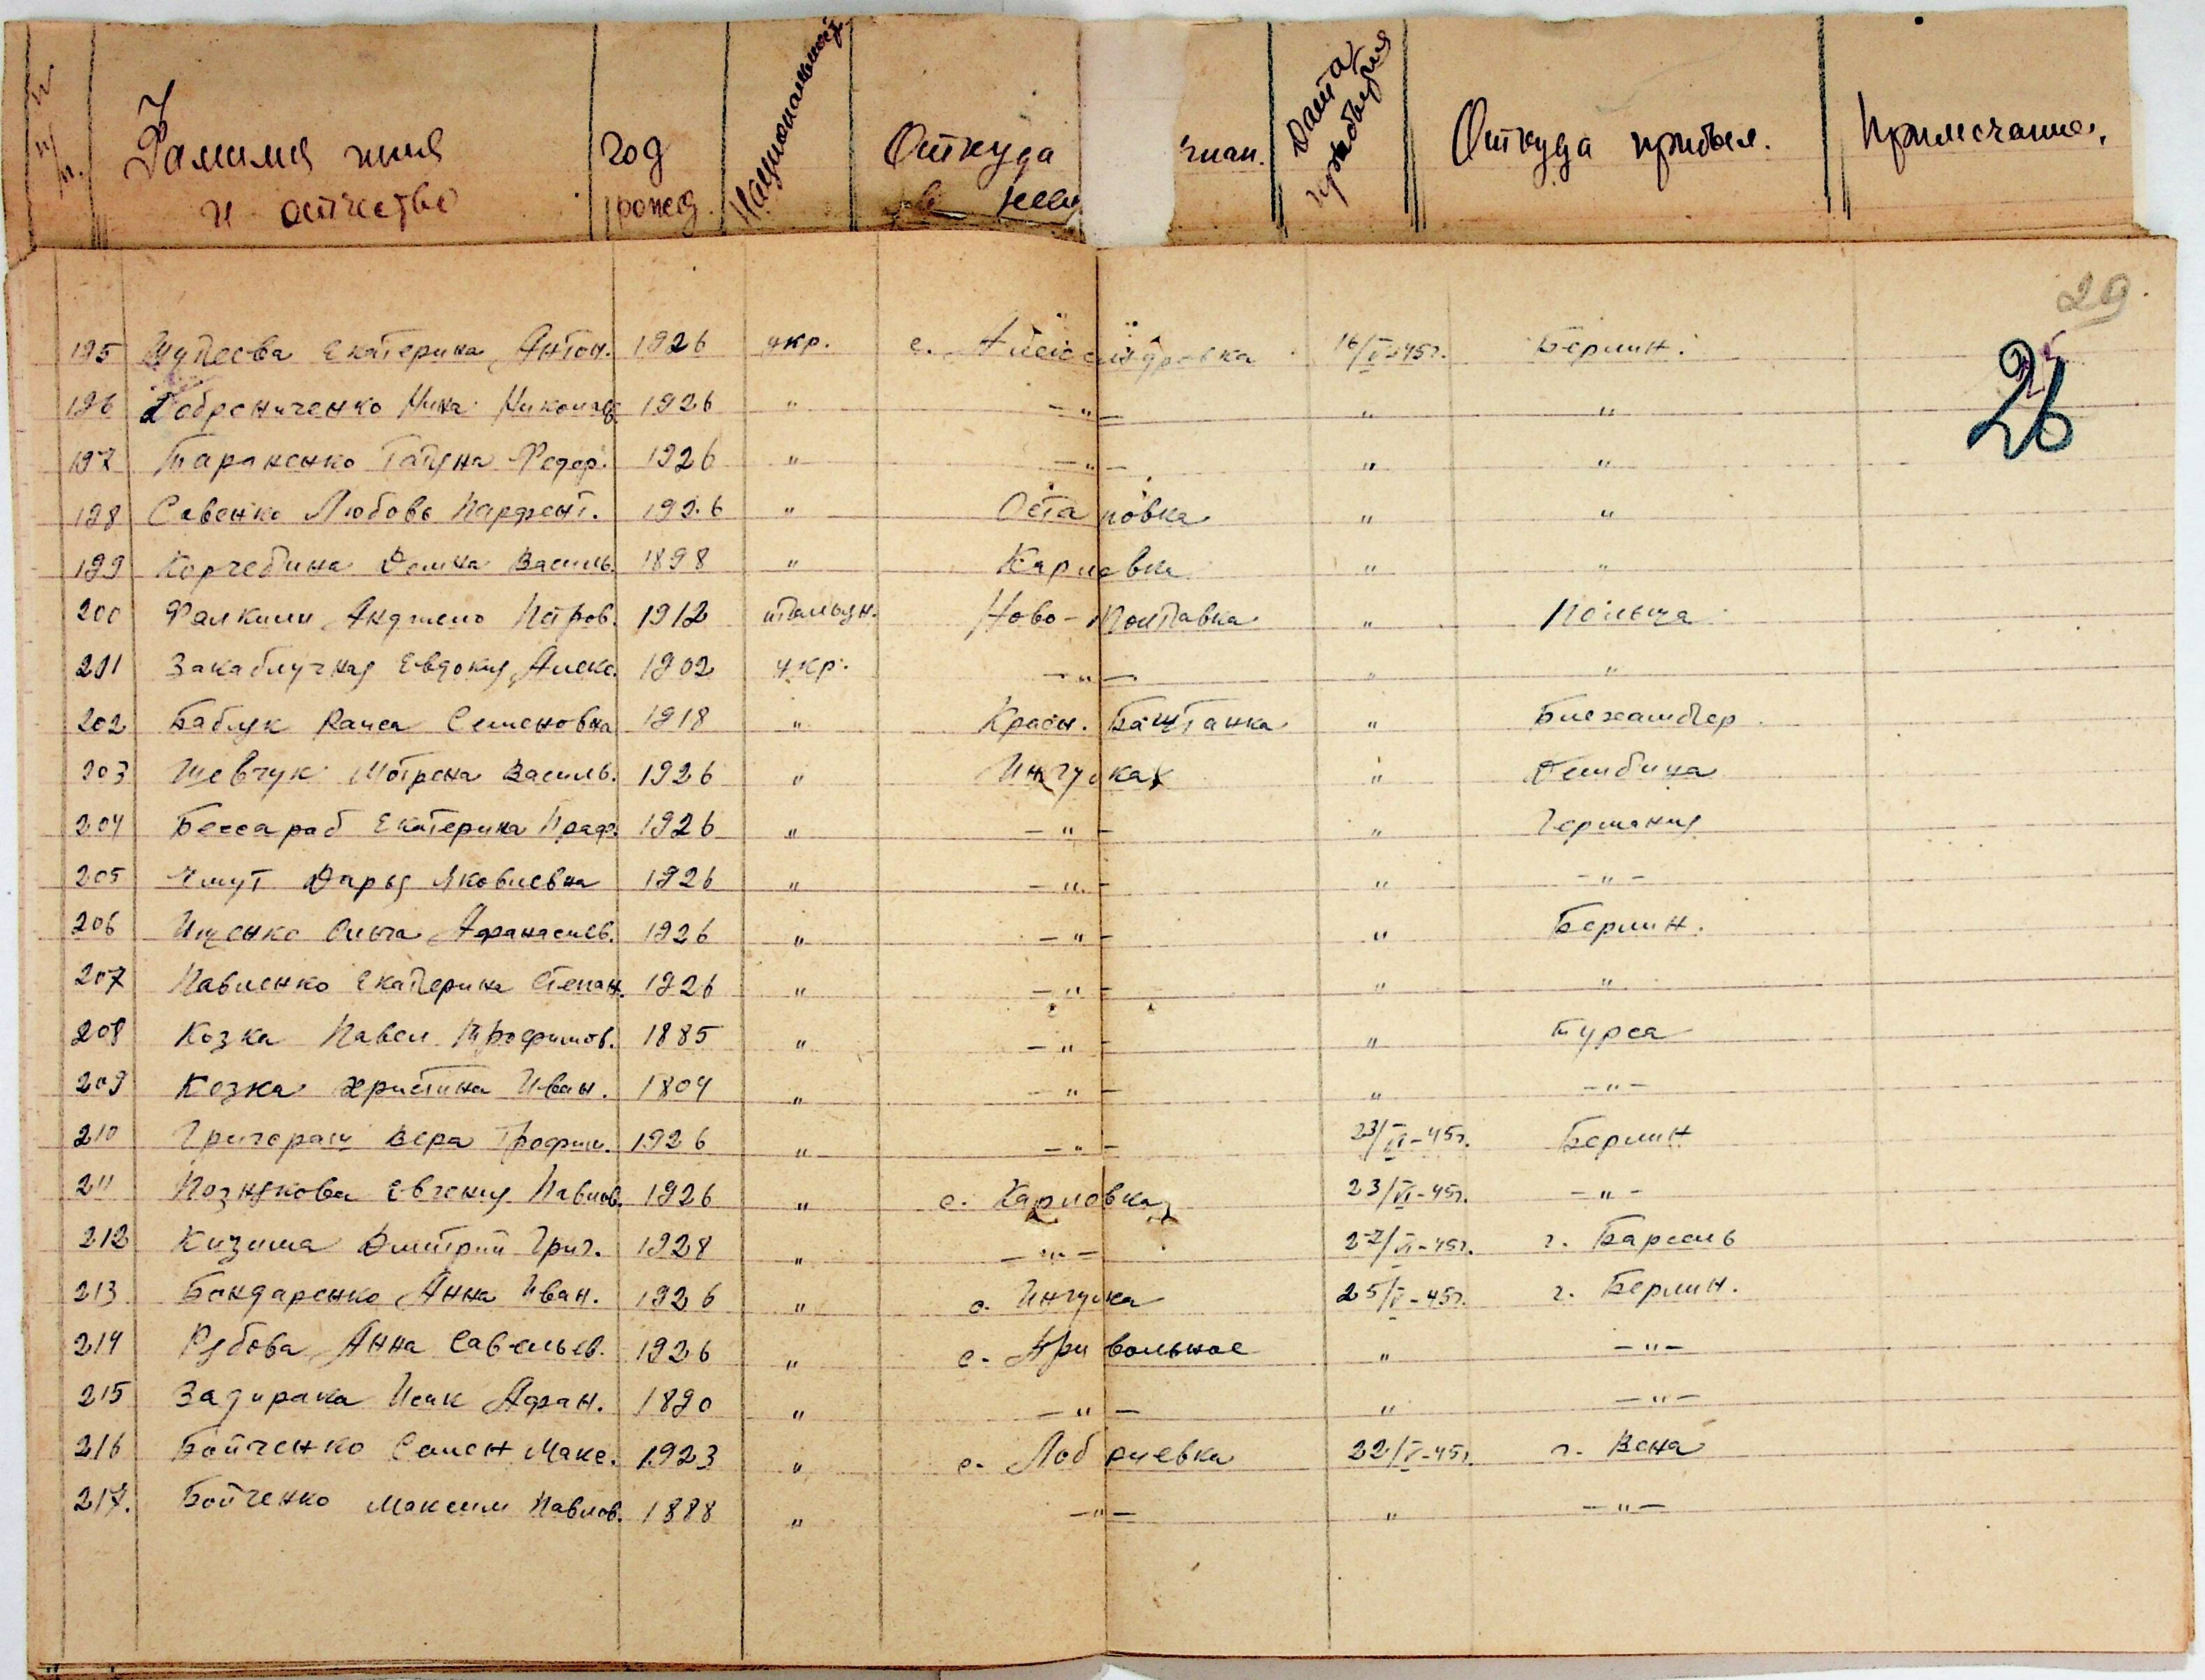 № п/п. Фамилия имя и отчество год рожд. Национальность Откуда в нем чан. Дата прибытия Откуда прибыл. Примечание.
29.
26
195 Екатерина Антон. 1926 укр. с. Александровка 16/V-45г. Берлин.
196 Добрениченко Нина Николаев 1926 " -"- " "
197 Тараненко Татяна Федор. 1926 " -"- " "
198 Савенко Любовь Парфент. 1926 " Остаповка " "
199 Корчебина Домна Василь. 1898 " Карловка " "
200 Фалкини Анджело Петров. 1912 итальян. Ново-Полтавка " Польша
201 Закаблучная Евдокия Алекс. 1902 укр. -"- " "
202 Баблук Раиса Семеновна 1918 " Красн. Баштанка " Блехамтер
203 Шевчук Мотрена Василь. 1926 " Ингулка " Дембица
204 Бессараб Екатерина Праф. 1926 " -"- " Германия
205 Чмут Дарья Яковлевна 1926 " -"- " -"-
206 Ищенко Ольга Афанасьев. 1926 " -"- " Берлин.
207 Павленко Екатерина Степан. 1926 " -"- " "
208 Козка Павел Трофимов. 1885 " -"- " Турса
209 Козка Христина Иван. 1894 " -"- " -"-
210 Григораш Вера Трофим. 1926 " -"- 23/VI-45г. Берлин
211 Познякова Евгения Павлов. 1926 " с. Карловка 23/VI-45г. -"-
212 Кизима Дмитрий Григ. 1928 " -"- 27/VI-45г. г. Барсель
213 Бондаренко Анна Иван. 1926 " с. Ингулка 25/V-45г. г. Берлин.
214 Рябова Анна Савельев. 1926 " с. Привольное " -"-
215 Задирака Исак Афан. 1890 " -"- " -"-
216 Бойченко Семен Макс. 1923 " с. Лоб риевка 22/V-45г. г. Вена
217. Бойченко Максим Павлов. 1888 " -"- " -"-